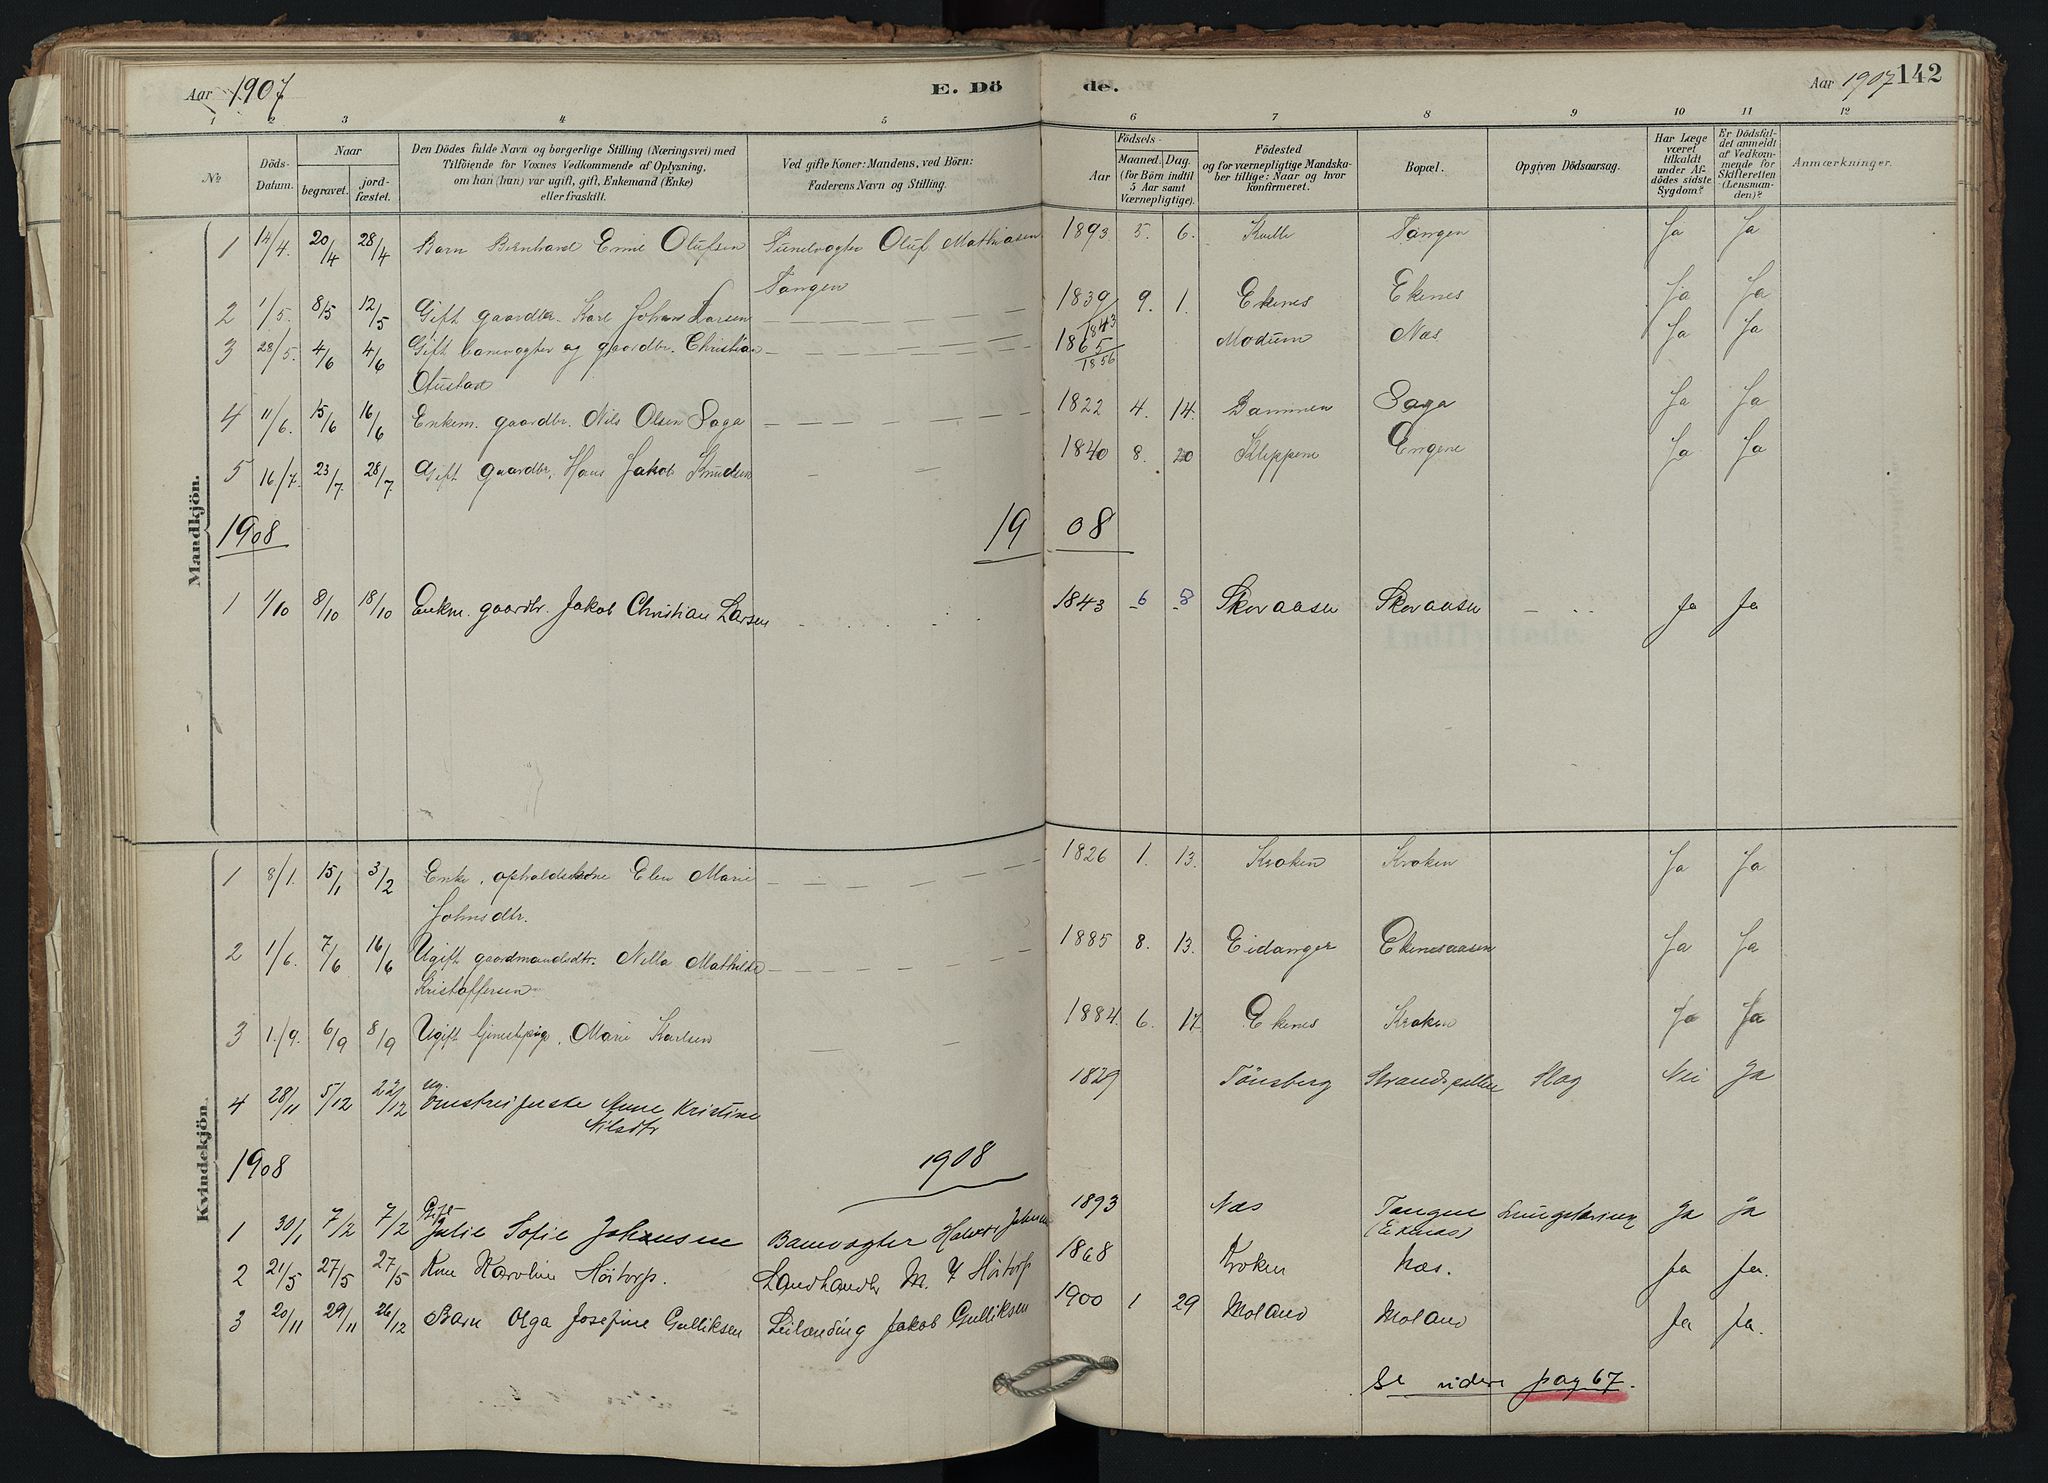 Aar 1907 E. Dö de. Aar 1907 142
1 2 3 4 5 6 7 8 9 10 11 12
№
Döds-Datum.
Naar
begravet.
jordfæstet.
Den Dödes fulde Navn og borgerlige Stilling (Næringsvei) med
Tilföiende for Voxnes Vedkommende af Oplysning,
om han (hun) var ugift, gift, Enkemand (Enke)
eller fraskilt.
Ved gifte Koner: Mandens, ved Börn:
Faderens Navn og Stilling.
Födsels-
Aar
Maaned. Dag.
(for Börn indtil
5 Aar samt
Værnepligtige).
Födested
og for værnepligtige Mandska-
ber tillige: Naar og hvor
konfirmeret.
Bopæl.
Opgiven Dödsaarsag.
Har Læge
været
tilkaldt
under Af-
dödes sidste
Sygdom?
Er Dödsfal-
det anmeldt
af Vedkom-
mende for
Skifteretten
(Lensman-
den)?
Anmærkninger.
Mandkjön.
1 14/4. 20/4 28/4 Barn Bernhard Emil Olufsen Oluf Mathiasen 1893 5. 6. Tangen Ja Ja
Tangen
2 1/5. 8/5 12/5 Gift gaardbr. Karl Johan Larsen 1839/1843 9. 1. Ekenes Ekenes Ja Ja
3 28/5. 4/6 4/6 Gift banevogter og gaardbr. Christian 1865/1856 Modum Næs Ja Ja
4 11/6. 15/6 16/6 Enkem. gaardbr. Nils Olsen Saga 1822 4. 14. Saga Ja Ja
5 16/7. 23/7. 28/7 Gift gaardbr. Hans Jakob Knudsen 1840 8. 20 Kleppene Engene Ja Ja
1908 19 08
1 1/10 8/10 18/10 Enkm. gaardbr. Jakob Christian Larsen 1843 6 8 Skovaasen Skovaasen Ja Ja
Kvindekjön.
1 8/1. 15/1 3/2 Enke, Elen Marie 1826 1. 13. Kroken Kroken Ja Ja
Johnsdtr.
2 1/6. 7/6 16/6 Ugift gaardmandsdtr. Nella Mathilde 1885 8. 13. Eidanger Ekenesaasen Ja Ja
Kristoffersen
3 1./9. 6/9 8/9 Ugift Marie Karlsen 1884. 6. 17. Ekenes Kroken Ja Ja
4 28/11 5/12 22/12 ug. Anne Kristine 1829 Tönsberg Slag Nei Ja
Nilsdtr
1908 1908
1 30/1 7/2 7/2 Julie Sofie Johansen Banevogter 1893 Næs Tangen Ja Ja
(Eknæs)
2 21/5 27/5 27/5 Kone Karoline Höitorp. Landhandlr M. Höitorp 1868 Kroken Næs. Ja Ja.
3 20/11 29/11 26/12 Barn Olga Josefine Gulliksen Leilænding Jakob Gulliksen 1900 1 29 Moland Moland Ja Ja.
Se videre pag 67.